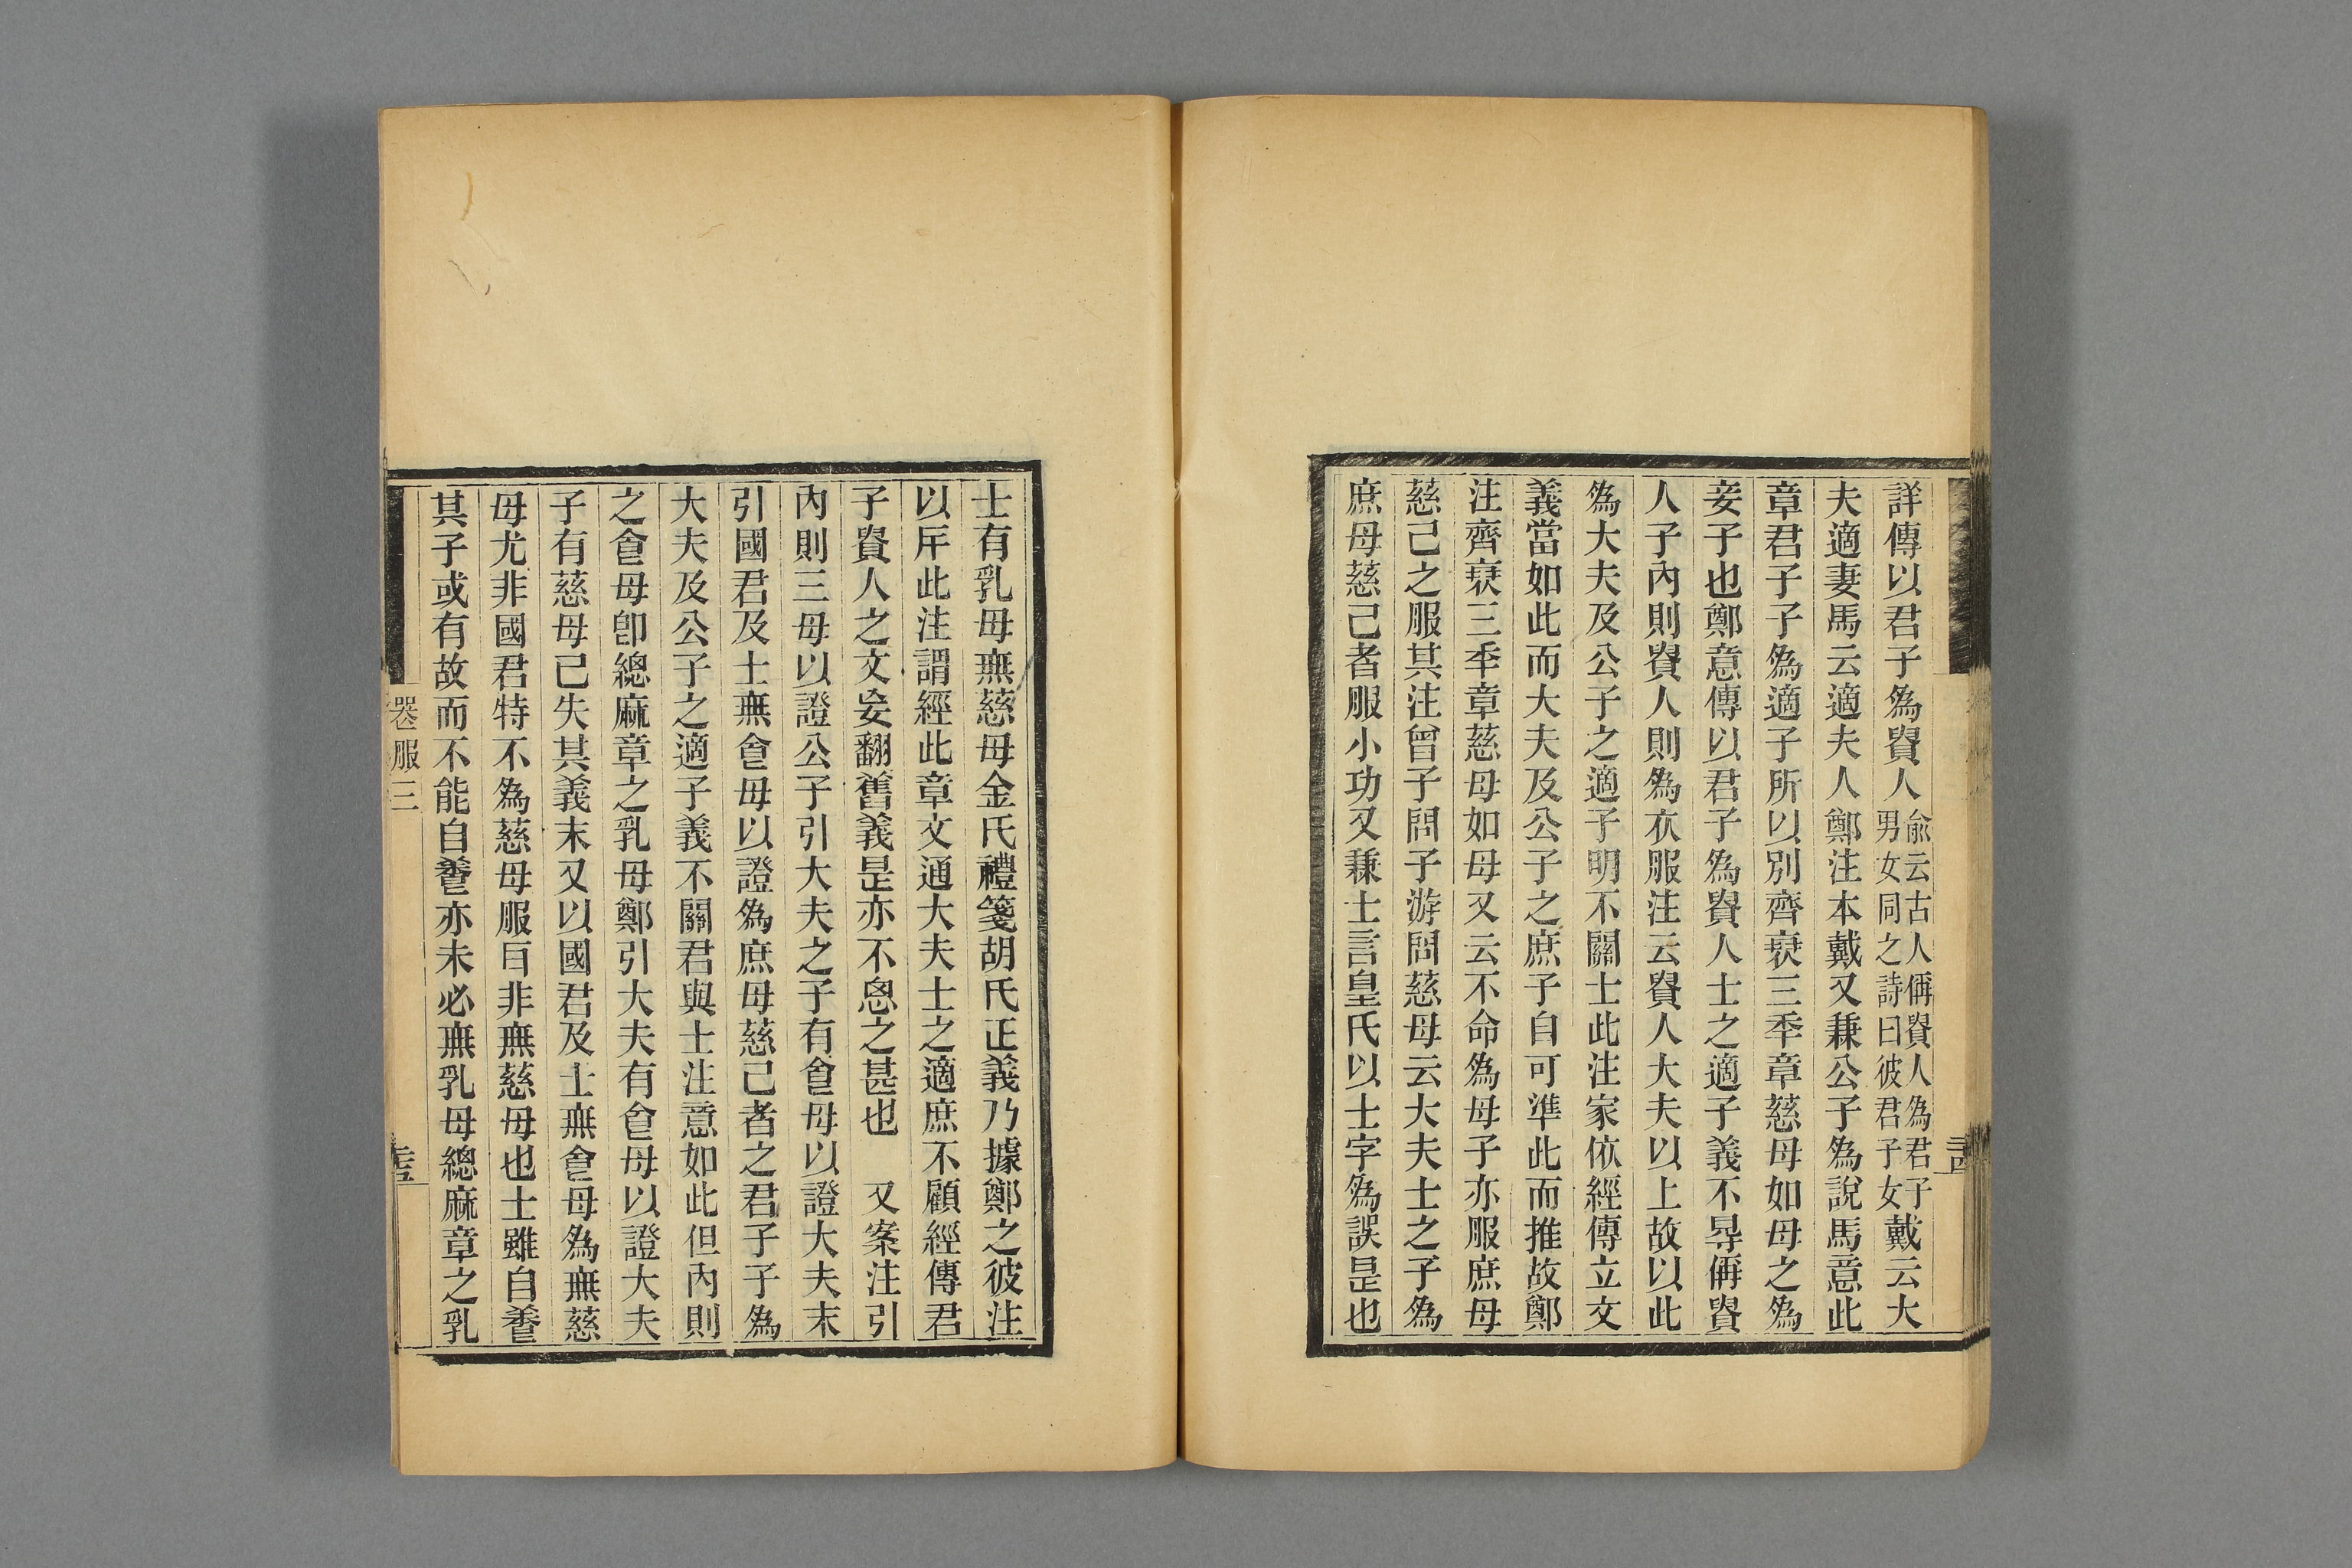 詳傳以君子為貴人俞云古人偁貴人為君子男女同之詩曰彼君子女戴云大
夫適妻馬云適夫人鄭注本戴又兼公子為說馬意此
章君子子為適子所以別齊衰三秊章慈母如母之為
妾子也鄭意傳以君子為貴人士之適子義不㝵偁貴
人子內則貴人則為衣服注云貴人大夫以上故以此
為大夫及公子之適子明不關士此注家依經傳立文
義當如此而大夫及公子之庶子自可準此而推故鄭
注齊衰三秊章慈母如母又云不命為母子亦服庶母
慈己之服其注曾子問子游問慈母云大夫士之子為
庶母慈己者服小功又兼士言皇氏以士字為誤是也
三四
士有乳母無慈母金氏禮箋胡氏正義乃據鄭之彼注
以斥此注謂經此章文通大夫士之適庶不顧經傳君
子貴人之文妄翻舊義是亦不思之甚也　又案注引
內則三母以證公子引大夫之子有食母以證大夫末
引國君及士無食母以證為庶母慈己者之君子子為
大夫及公子之適子義不關君與士注意如此但內則
之食母卽緦麻章之乳母鄭引大夫有食母以證大夫
子有慈母已失其義末又以國君及士無食母為無慈
母尤非國君特不為慈母服㠯非無慈母也士雖自養
其子或有故而不能自養亦未必無乳母緦麻章之乳
喪服三
三五